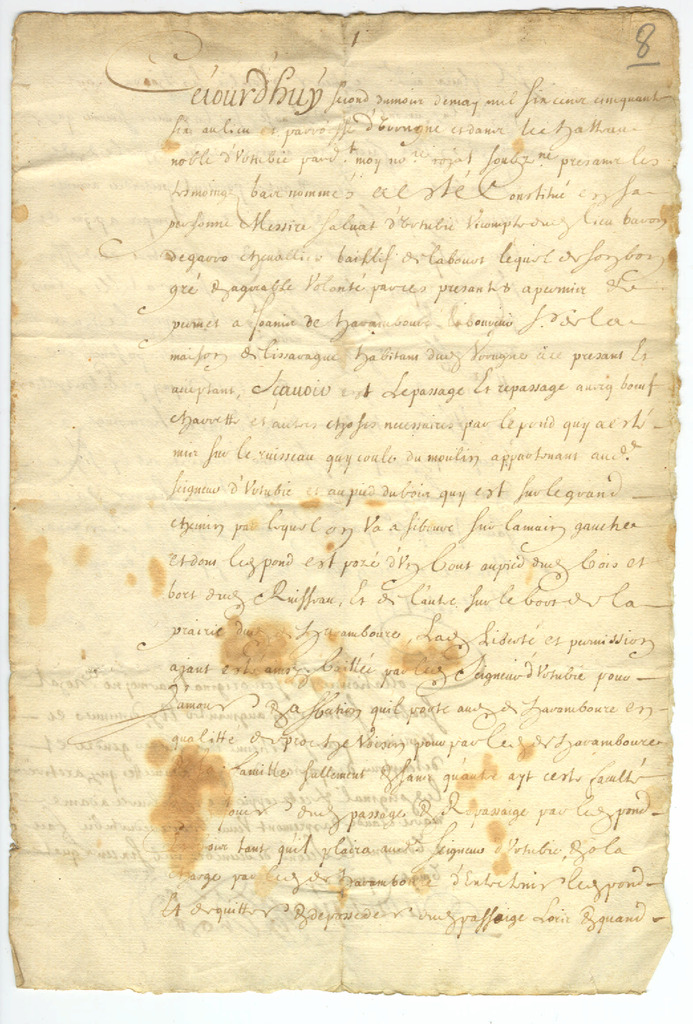 1
8
Cejourdhuy second du mois de may mil six cens cinquante
six au lieu et parroisse d'Vrrugne et dans le chatteau
noble d'Vrtubie pard.t moy no.re royal soubz.ne presans les
tesmoings bas nommés a esté Constitué en sa
personne Messire Saluat d'Vrtubie Vicompte dud lieu baron
de garro cheuallier baillif de labourt lequel de son bon
gré & agreable Volonté par ces presantes a permier et
permet a Joanis de haramboure S.r de la
maison de habitant dud Vrrugne a ce presant Et
acceptant, Sçauoir est Le passage Et repassage aueq bœuf
charrette et autres choses necessaires par le pond quy a esté
mis sur le ruisseau quy coule du moulin appartenant aud.
seigneur d'Vrtubie et au pied du bois quy est sur le grand
chemin par lequel on Va a siboure sur la main gauche
et dont led pond est pozé d'Vn bout au pied dud bois et
bort dud Ruisseau, Et de l'autre sur le bort de la
prairie dud de haramboure, Lad Liberté et permission
ayant esté baillée par led Seigneur d'Vrtubie pour
l'amour & affection qu'il porte aud de haramboure en
qualitte de proche Voisin pour par led de haramboure
famille sullement & sans qu'autre ayt ceste faculté
jouir dud passage & Repassaige par led pond
pour tant qu'il plaira aud Seigneur d'Vrtubie, & a la
charge par led de haramboure d'Entretenir led pond
Et de quitter & deposseder dud passaige Lors & quand